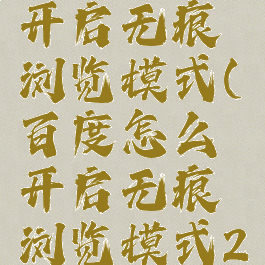 开启无痕
浏览模式(
百度怎么
开启无痕
浏览模式2